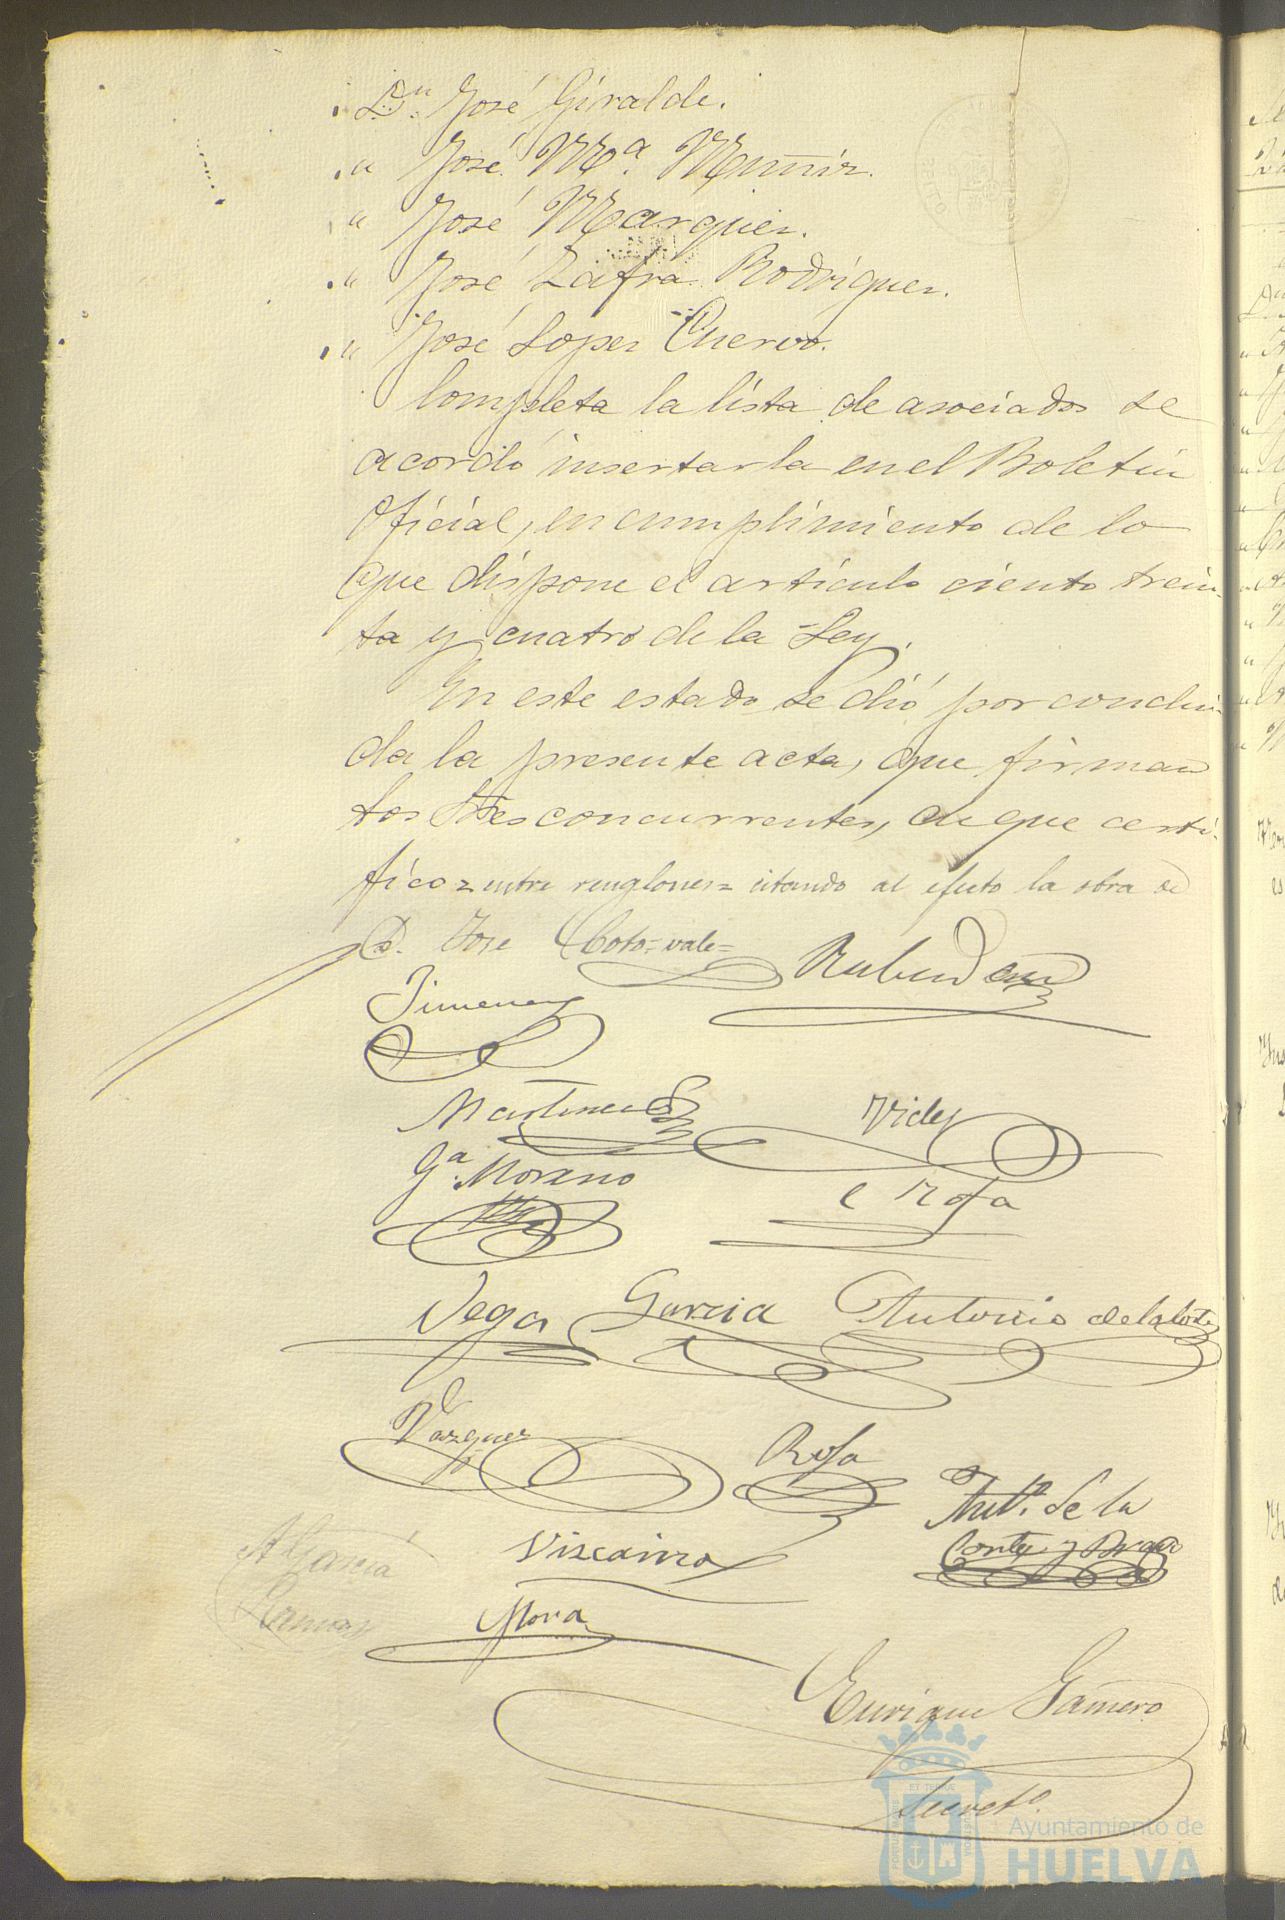 Dn. José Giralde.
" José Mª. Mañiz.
" José Marquez.
" José Zafra Rodriguez.
" José Lopez Cuervo.
Completa la lista de asociados se
acordó insertarla en el Boletin
Oficial, en cumplimiento de lo
que dispone el artículo ciento trein-
ta y cuatro de la Ley.
En este estado se dió por conclui-
da la presente acta, que firman
los Sres concurrentes, de que certi-
fico = entre renglones = citando al efecto la obra de
D. Jose Coto = vale =
Jimenez
Martinez
Videz
Gª. Morano
Rosa
Vega Garcia Antonio de la Corte
Vazquez
Rosa
Antº. de la
Corte y Bravo
A Garcia
Ramos
Vizcaino
Mora
Enrique Gamero
Secretº.
Ayuntamiento de
HUELVA